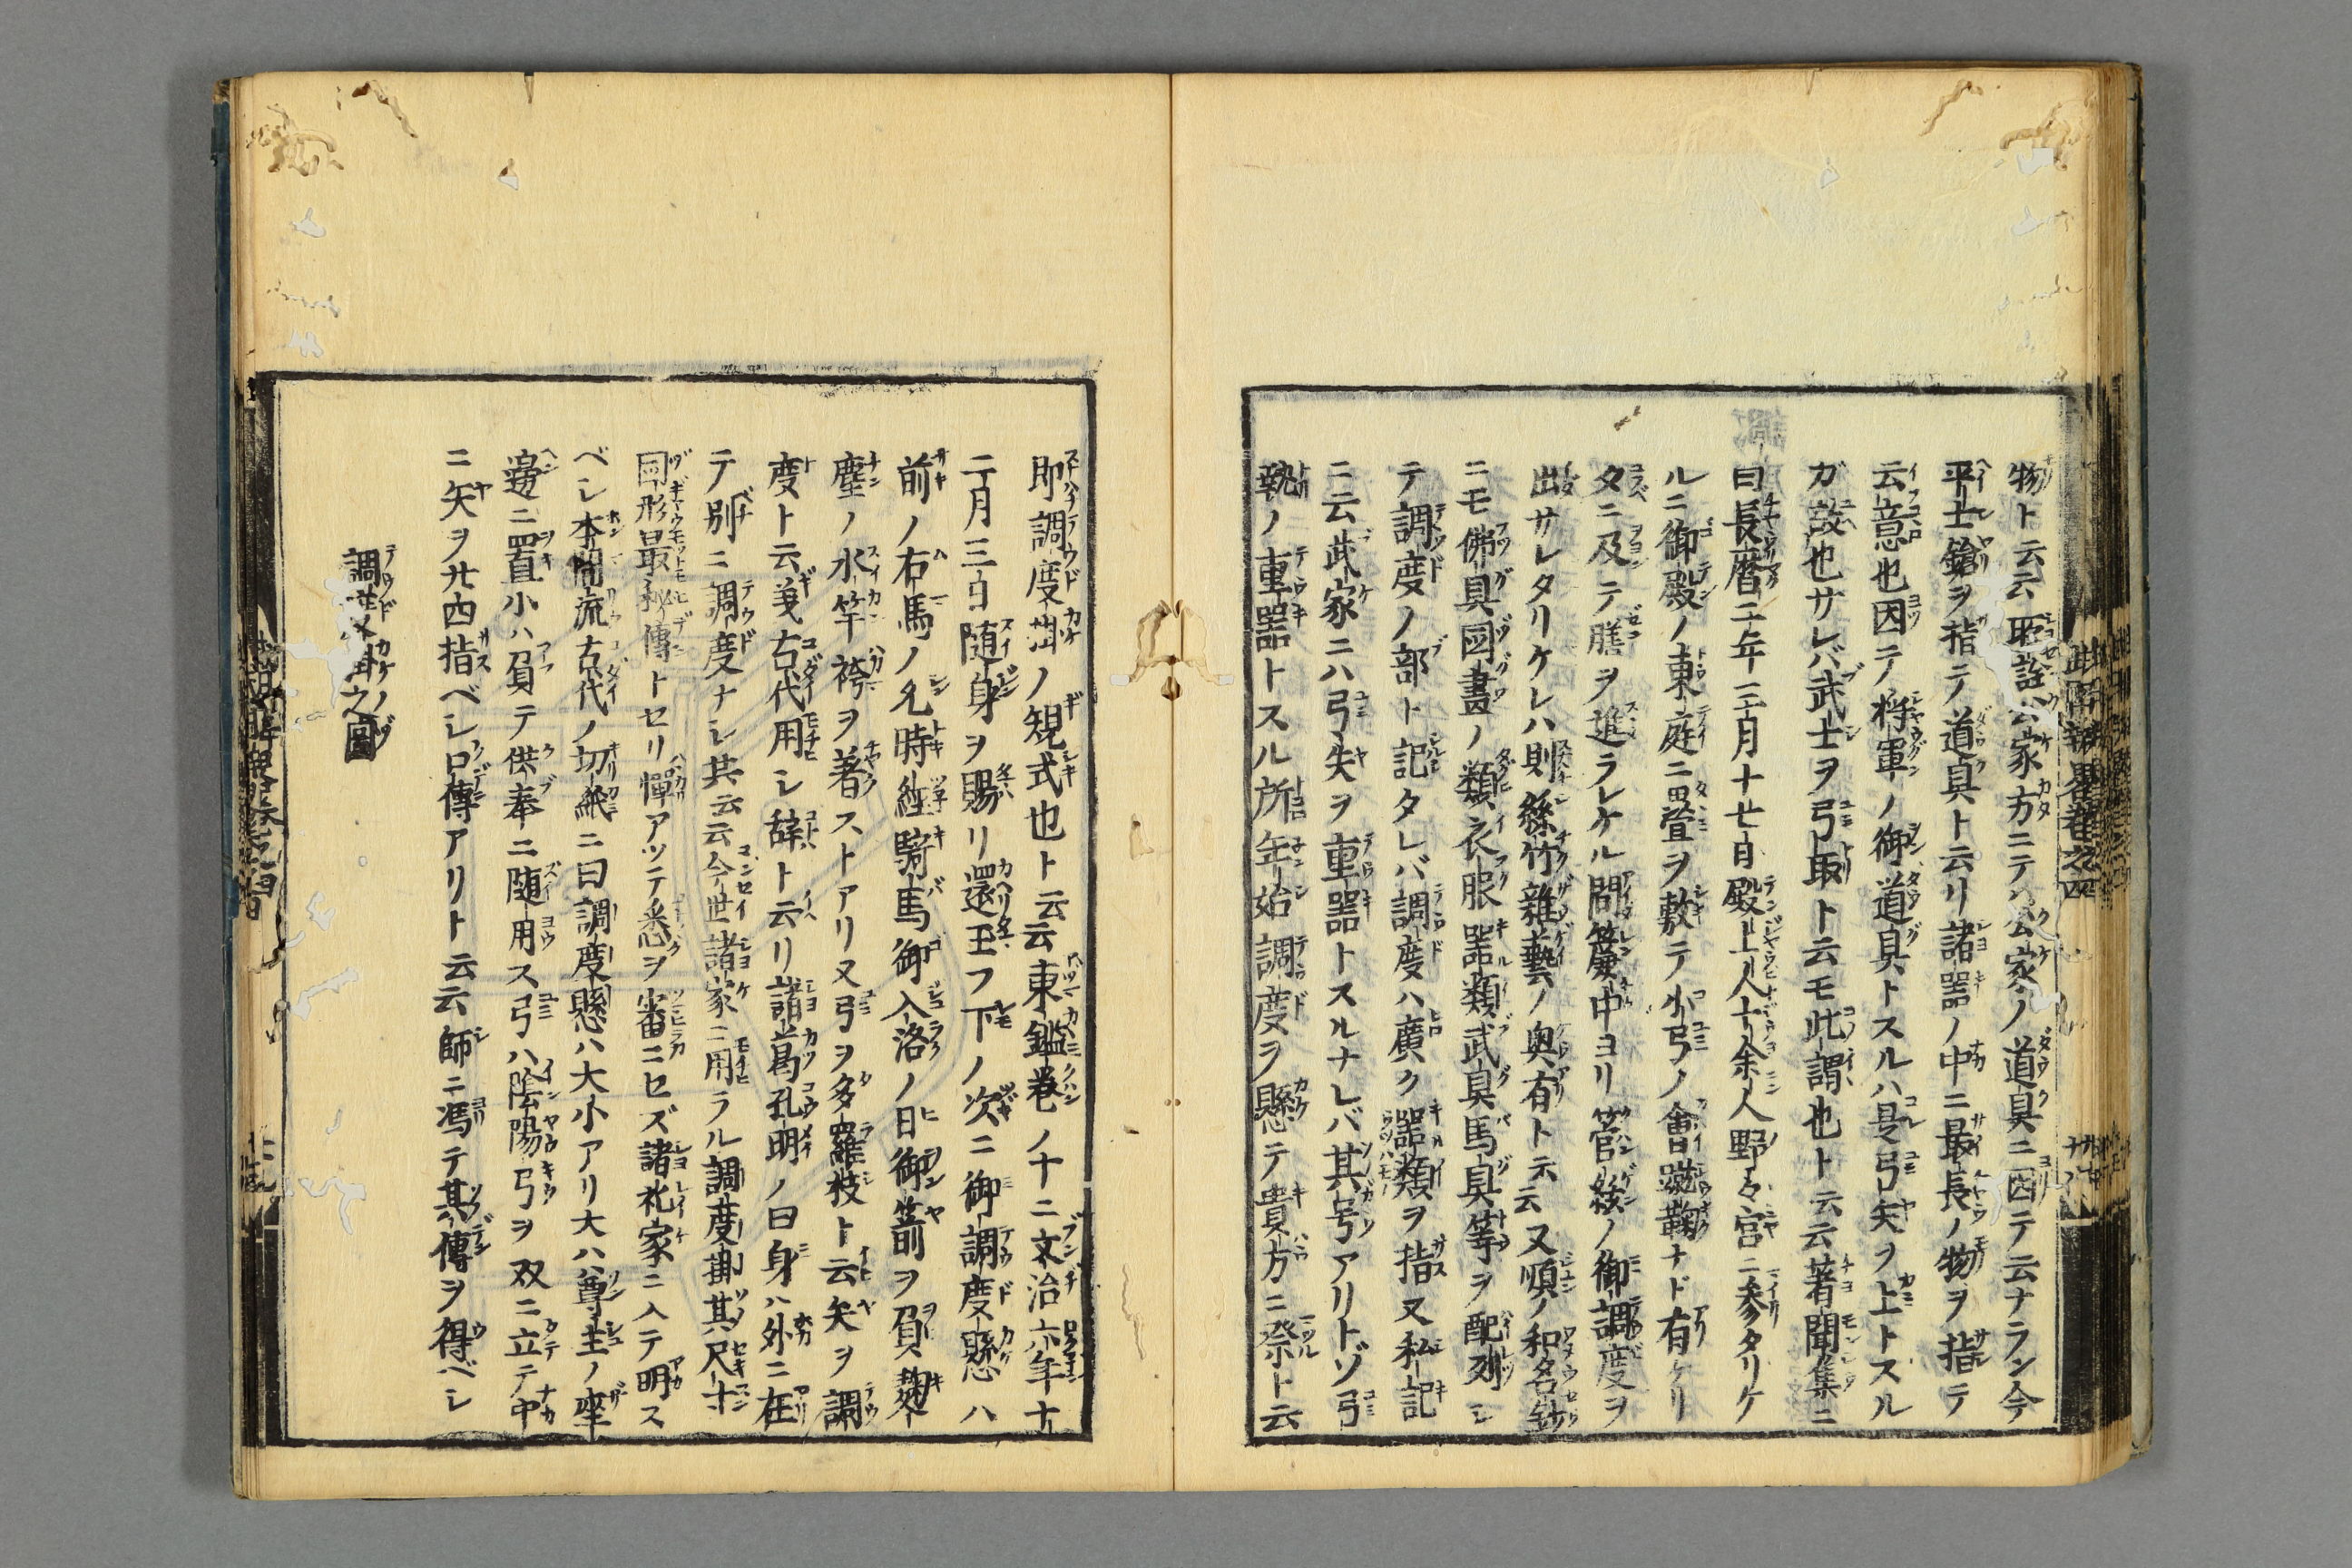 物ト云云所詮公家方ニテハ公家ノ道具ニ因テ云ナラン今
平士鎗ヲ指テ道具ト云リ諸器ノ中ニ最長ノ物ヲ指テ
云意也因テ将軍ノ御道具トスルハ是弓矢ヲ上トスル
ガ故也サレバ武士ヲ弓取ト云モ此謂也ト云云著聞集ニ
曰長暦二年三月十七日殿上人十余人野々宮ニ参タリケ
ルニ御殿ノ東庭ニ畳ヲ敷テ小弓ノ會蹴鞠ナド有ケリ
タニ及テ膳ヲ進ラレケル間簾中ヨリ管絃ノ御調度ヲ
出サレタリケレハ則絲竹雜藝ノ奥有ト云云又順ノ和名鈔
ニモ佛具図畫ノ類衣服器類武具馬具等ヲ配列シ
テ調度ノ部ト記タレバ調度ハ廣ク器類ヲ指又私記
ニ云武家ニハ弓矢ヲ重器トスルナレバ其号アリトゾ弓
執ノ重器トスル所年始調度ヲ懸テ貴方ニ祭ト云
即調度掛ノ規式也ト云云東鑑巻ノ十二文治六年十
二月三日随身ヲ賜リ還玉フ下ノ次ニ御調度懸ハ
前ノ右馬ノ允時経騎馬御入洛ノ日御箭ヲ負麹
塵ノ水竿袴ヲ著ストアリ又弓ヲ多羅枝ト云矢ヲ調
度ト云義古代用シ辞ト云リ諸葛孔明ノ曰身ハ外ニ在
テ別ニ調度ナシ共云云今世諸家ニ用ラル調度掛其尺寸
図形最秘傳トセリ憚アツテ悉ヲ審ニセズ諸礼家ニ入テ明ス
ベシ本間流古代ノ切紙ニ曰調度懸ハ大小アリ大ハ尊主ノ座
邉ニ置小ハ負テ供奉ニ随用ス弓ハ陰陽弓ヲ双ニ立テ中
ニ矢ヲ廿四指ベシ口傳アリト云云師ニ馮テ其傳ヲ得ベシ
調度掛之圖